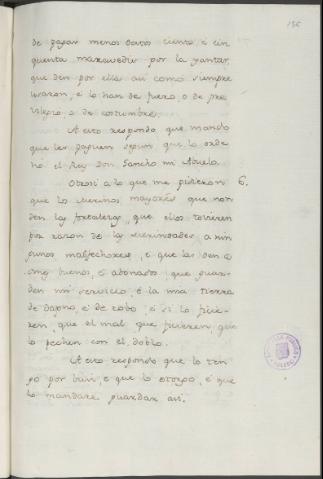 136
de pagar menos destos ciento, e cin
quenta maravedis por la yantar,
que den por ella asi como siempre
usaron, e lo han de fuero, o de pre
vilegio, o de costumbre.
A esto respondo que mando
que les paguen segun que lo orde
nó el Rey Don Sancho mi Abuelo.
Otrosi a lo que me pidieron 6.
que los Merinos mayores que non
den las fortalezas, que ellos tovieren
por razon de las Merindades, a nin
gunos malfechores, e que las den a
omes buenos, e abonados que guar
den mi servicio, e la mia tierra
de dapno, e de robo, e si lo ficie
ren, que el mal que ficieren, que
lo pechen con el doblo.
A esto respondo que lo ten
go por bien, e que lo otorgo, e que
lo mandaré guardar asi.